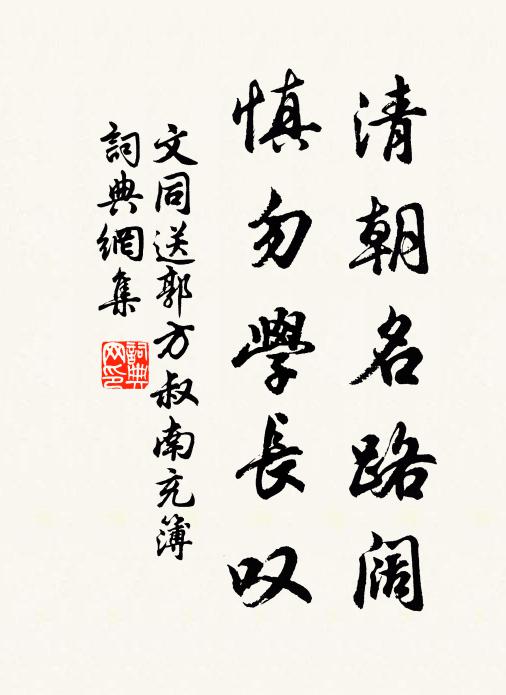 清朝名路阔
慎勿學長叹
文同送郭方叔南充簿
詞典網集
詞典网印